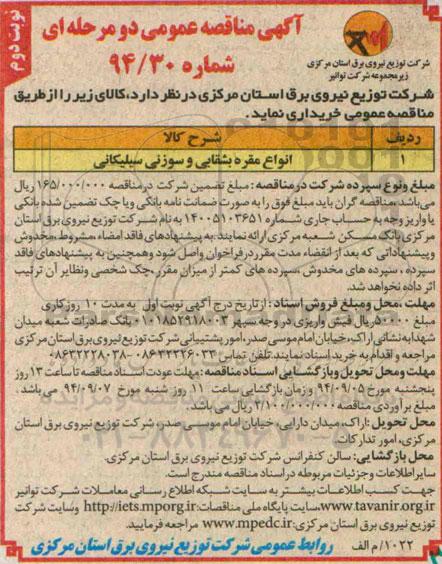 نوبت دوم
آگهی مناقصه عمومی دو مرحله ای
شماره ۹۴/۳۰
شرکت توزیع نیروی برق استان مرکزی
زیرمجموعه شرکت توانیر
شرکت توزیع نیروی برق استان مرکزی در نظر دارد، کالای زیر را از طریق
مناقصه عمومی خریداری نماید.
ردیف شرح کالا
۱ انواع مقره بشقابی و سوزنی سیلیکانی
مبلغ و نوع سپرده شرکت در مناقصه: مبلغ تضمین شرکت در مناقصه ۱۶۵/۰۰۰/۰۰۰ ریال
می‌باشد، مناقصه گران باید مبلغ فوق را به صورت ضمانت نامه بانکی و یا چک تضمین شده بانکی
یا واریز وجه به حساب جاری شماره ۱۴۰۰۵۱۰۳۶۵۱ به نام شرکت توزیع نیروی برق استان
مرکزی بانک مسکن شعبه مرکزی ارائه نمایند. به پیشنهادهای فاقد امضاء، مشروط، مخدوش
و پیشنهاداتی که بعد از انقضاء مدت مقرر در فراخوان واصل شود و همچنین به پیشنهادهای فاقد
سپرده، سپرده های مخدوش، سپرده های کمتر از میزان مقرر، چک شخصی و نظایر آن ترتیب
اثر داده نخواهد شد.
مهلت، محل و مبلغ فروش اسناد: از تاریخ درج آگهی نوبت اول به مدت ۱۰ روز کاری
مبلغ ریال فیش واریزی در وجه سپهر ۰۱۰۱۸۵۲۹۱۸۰۰۳ - بانک صادرات شعبه میدان
شهدا به نشانی اراک، خیابان امام موسی صدر، امور پشتیبانی شرکت توزیع نیروی برق استان مرکزی
مراجعه و اقدام به خرید اسناد نمایند. تلفن تماس ۰۸۶۳۳۳۲۶۰۳۳ - ۰۸۶۳۲۲۲۸۰۳۸
مهلت و محل تحویل و بازگشایی اسناد مناقصه: مهلت عودت اسناد مناقصه تا ساعت ۱۳ روز
پنجشنبه مورخ ۹۴/۰۹/۰۵ و زمان بازگشایی ساعت ۱۱ روز شنبه مورخ ۹۴/۰۹/۰۷ می‌باشد.
مبلغ برآوردی مناقصه ۲/۱۰۰/۰۰۰/۰۰۰ ریال می باشد.
محل تحویل: اراک، میدان دارایی، خیابان امام موسی صدر، شرکت توزیع نیروی برق استان
مرکزی، امور تدارکات.
محل بازگشایی: سالن کنفرانس شرکت توزیع نیروی برق استان مرکزی.
سایر اطلاعات و جزئیات مربوطه در اسناد مناقصه مندرج است.
جهت کسب اطلاعات بیشتر به سایت شبکه اطلاع رسانی معاملات شرکت توانیر
www.tavanir.org.ir، سایت پایگاه ملی مناقصات: http://iets.mporg.ir و سایت شرکت
توزیع نیروی برق استان مرکزی: www.mpedc.ir مراجعه فرمایید.
۱۰۲۲/م الف
روابط عمومی شرکت توزیع نیروی برق استان مرکزی